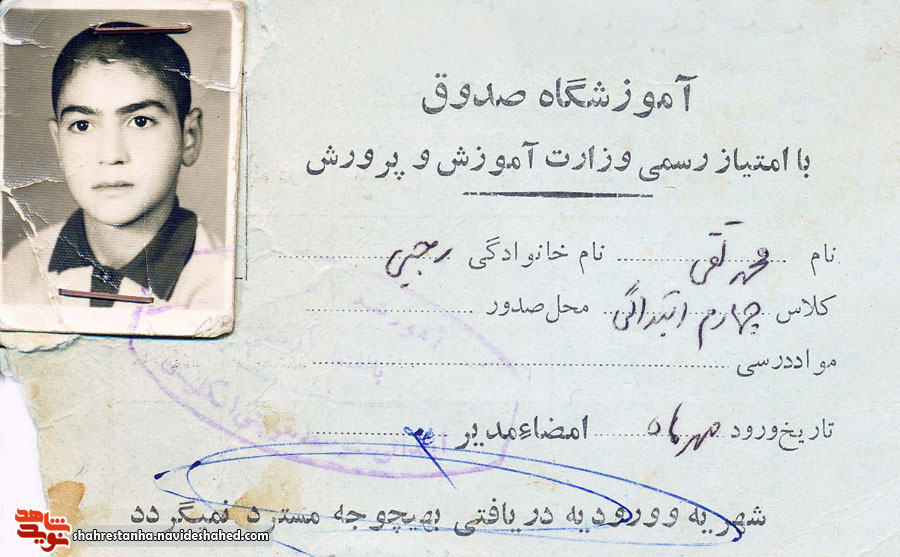 آموزشگاه صدوق
با امتیاز رسمی وزارت آموزش و پرورش
نام محمد تقی نام خانوادگی رجبی
کلاس چهارم ابتدائی محل صدور
مواد درسی
تاریخ ورود مهر ماه امضاء مدیر
شهریه و ورودیه دریافتی بهیچوجه مسترد نمیگردد
نوید شاهد
shahrestanha.navideshahed.com